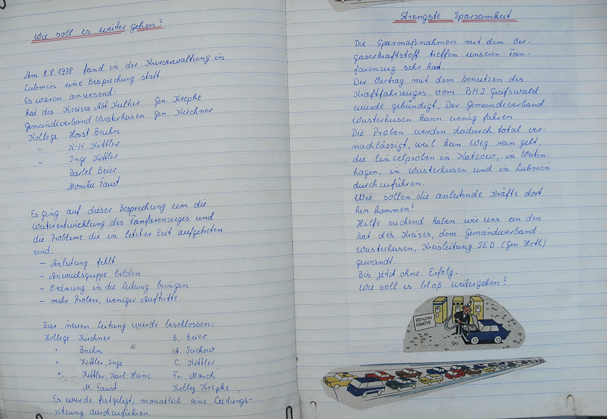 Wie soll es weiter gehen?
Am 8.8.1978 fand in der Kurverwaltung in
Lubmin eine Besprechung statt.
Es waren anwesend:
Rat des Kreises Abt. Kultur Gen. Krepke
Gemeindeverband Wusterhusen Gen. Kirchner
Kollege Horst Bruhn
" K.H. Kettler
" Inge Kettler
Bärbel Beier
Monika Faust
Es ging auf dieser Besprechung um die
Weiterentwicklung des Fanfarenzuges und
die Probleme die in letzter Zeit aufgetreten
sind.
- Anleitung fehlt
- Anwuchsgruppe bilden
- Ordnung in die Leitung bringen
- mehr Proben, weniger Auftritte
Zur neuen Leitung wurde beschlossen:
Kollege Kirchner B. Beier
" Bruhn " Suckow
" Kettler, Inge C. Kettler
" Kettler, Karl Hein Fr.
" M. Faust Kolleg. Krepke
Es wurde festgelegt, monatlich eine Leitungs-
sitzung durchzuführen.
Strengste Sparsamkeit
Die Sparmaßnahmen mit dem Ver-
gaserkraftstoff treffen unseren Fan-
farenzug sehr hart.
Der Vertrag mit dem benutzen des
Kraftfahrzeuges vom Greifswald
wurde gekündigt. Der Gemeindeverband
Wusterhusen kann wenig fahren.
Die Proben werden dadurch total ver-
nachlässigt, weil kein Weg rein geht,
die Einzelproben in Katzow, in
hagen, in Wusterhusen und in Lubmin
durchzuführen.
Wie sollen die anleitende Kräfte dort
hin kommen?
Hilfe suchend haben wir uns an den
Rat des Kreises, dem Gemeindeverband
Wusterhusen, Kreisleitung SED (Gen.
gewandt.
Bis jetzt ohne Erfolg.
Wie soll es bloß weitergehen?
BENZIN
GRATIS